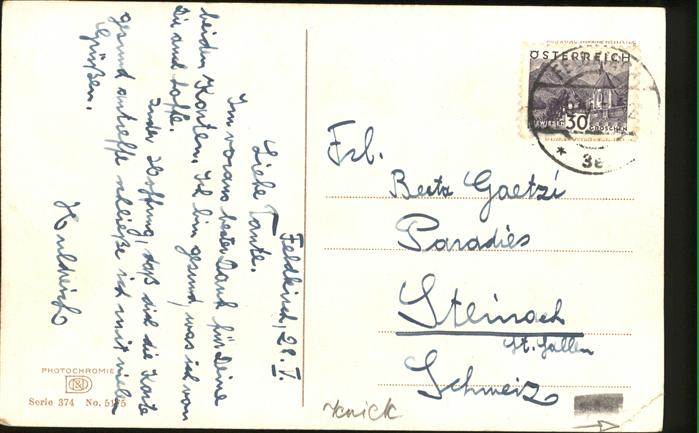 Feldkirch, 28. V.
Liebe Tante.
Im voraus besten Dank für Deine
beiden Karten. Ich bin gesund, was ich von
Dir auch hoffe.
In der Hoffnung, daß dich die Karte
gesund antreffe schließe ich mit vielen
Grüßen.
Huldreich
PHOTOCHROMIE
Serie 374 No. 5175
ÖSTERREICH
30
GROSCHEN
* 3
Frl.
Berta Gaetzi
Paradies
Steinach
St. Gallen
Schweiz
Knick